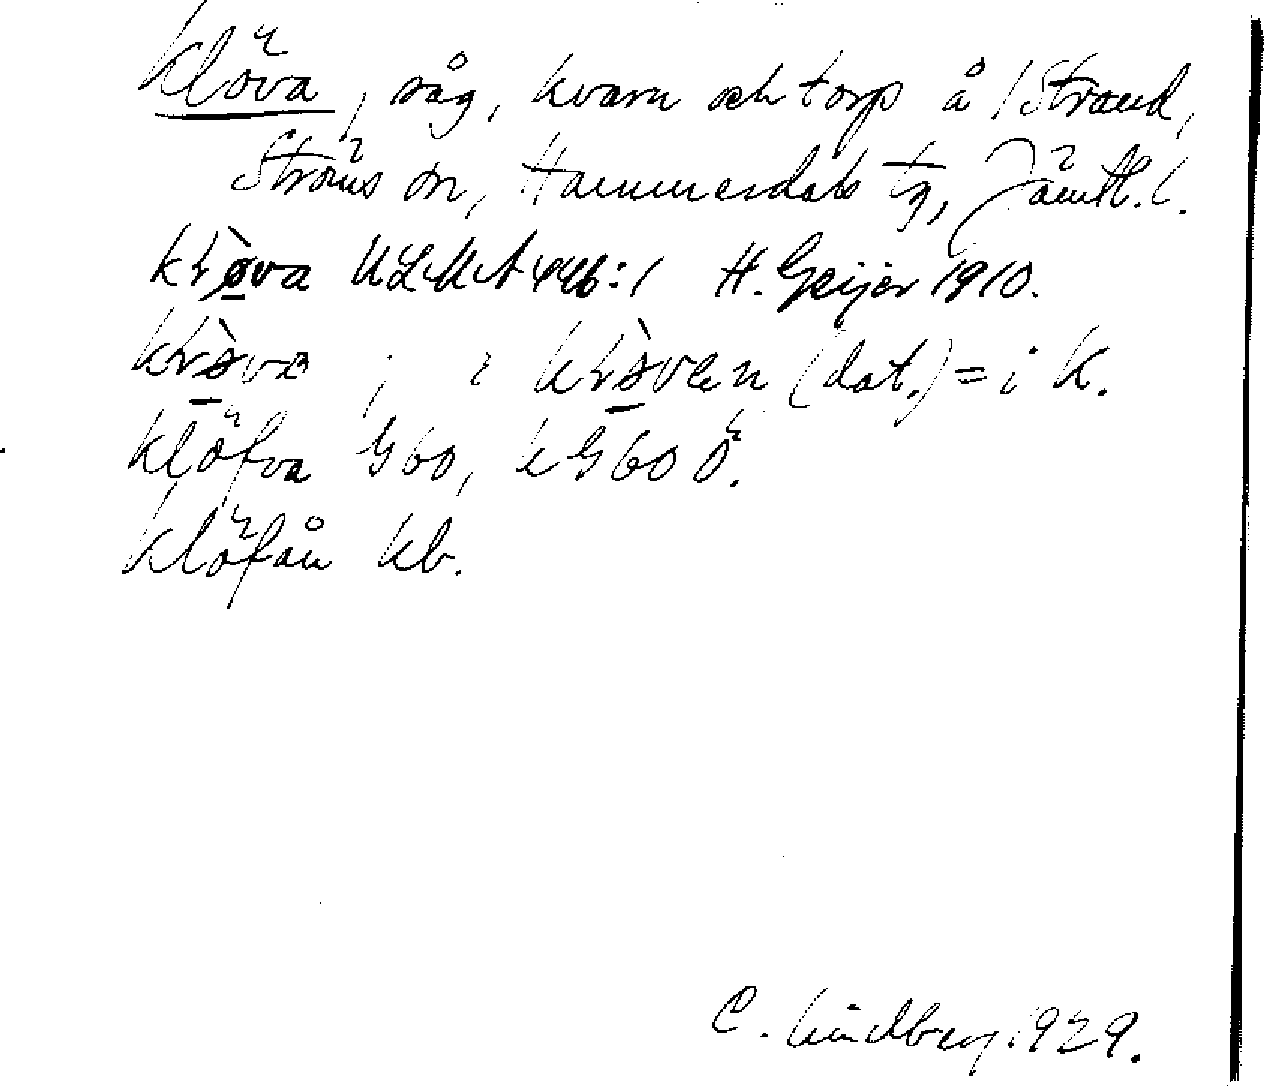 Klöva, såg, kvarn och torp å 1 Strand,
Ströms sn, Hammerdals tg, Jämtl. l.
kɬø̀va ULMA 446:1 H. Geijer 1910.
kɬø̀va ; i kɬø̀ven (dat.) = i K.
Klöfva G 60, kG 60 Ö.
Klöfån kb.
C. Lindberg 1929.